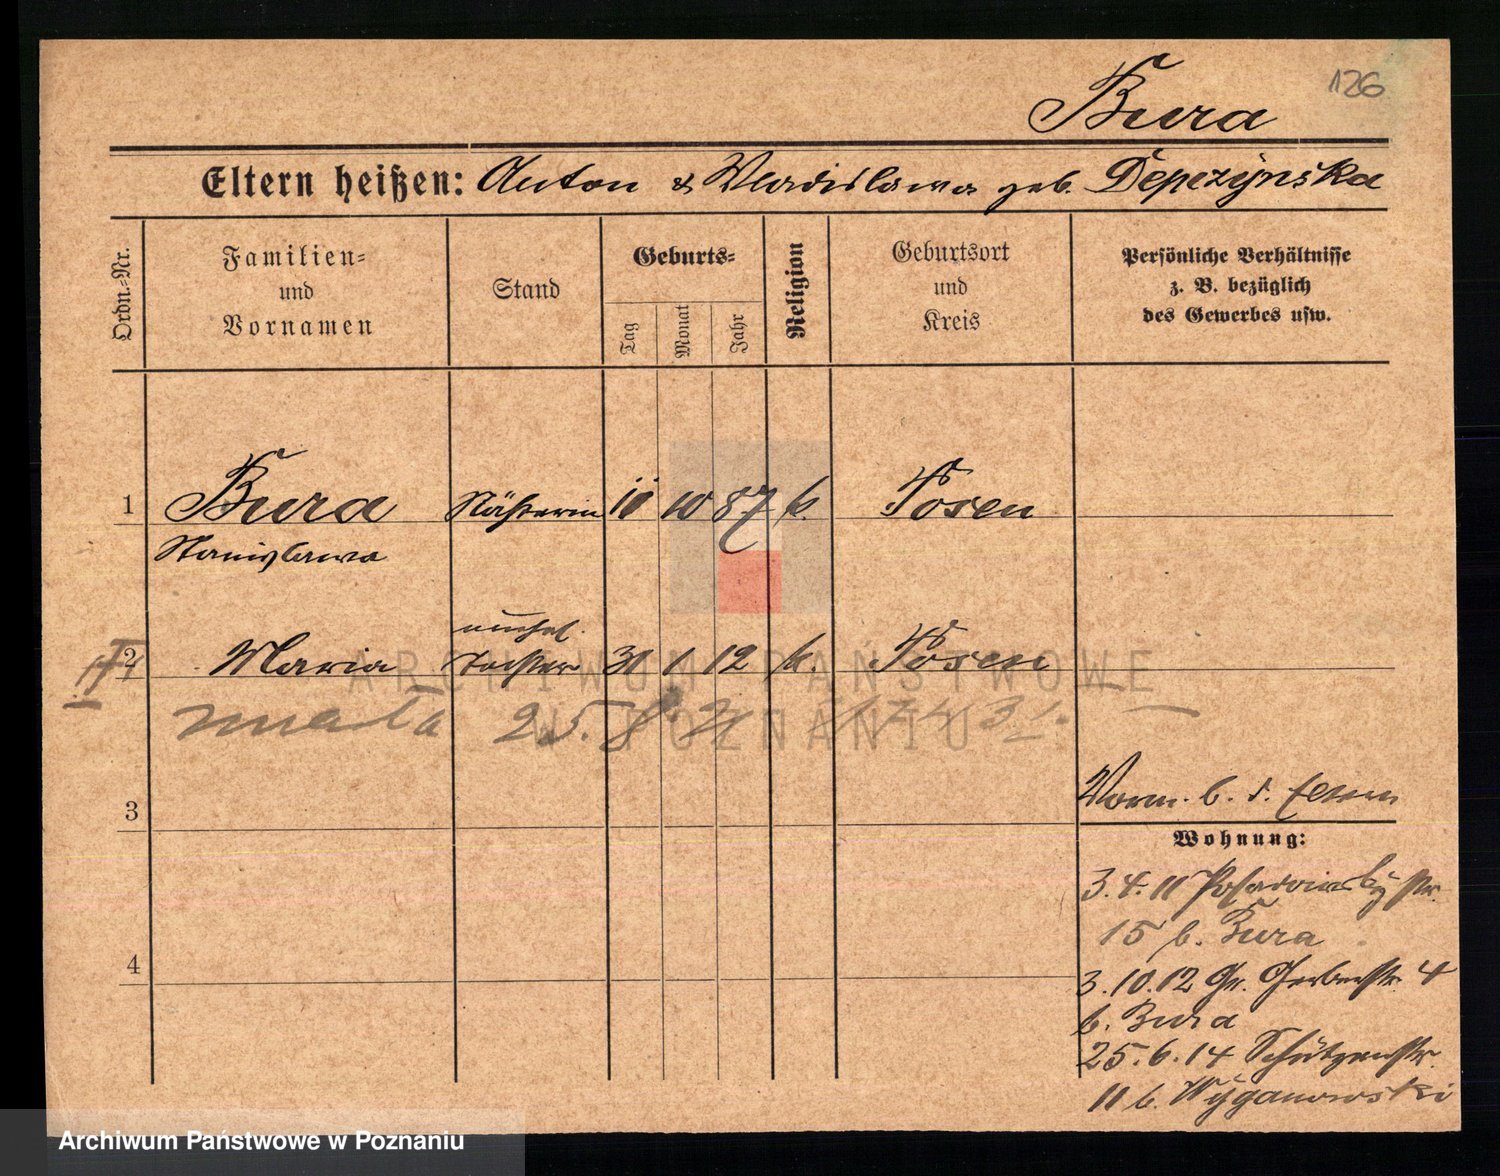 126
Bura
Eltern heißen: Anton & Wladislawa geb. Depczynska
Ordn.-Nr.
Familien-
und
Vornamen
Stand
Geburts-
Tag
Monat
Jahr
Religion
Geburtsort
und
Kreis
Persönliche Verhältnisse
z. B. bezüglich
des Gewerbes usw.
1 Bura Näherin 10 87 k. Posen
Stanislawa
unehel.
2 Maria Tochter 30 1 12 k. Posen
25. 8.
3
Vorm. b. d. Eltern
Wohnung:
3.4.11 str.
15 b. Bura
4
3.10.12 Gr. Gerberstr. 4
b. Bura
25.6.14 Schützenstr.
11 b. Wyganowski
ARCHIWUM PAŃSTWOWE
W POZNANIU
Archiwum Państwowe w Poznaniu